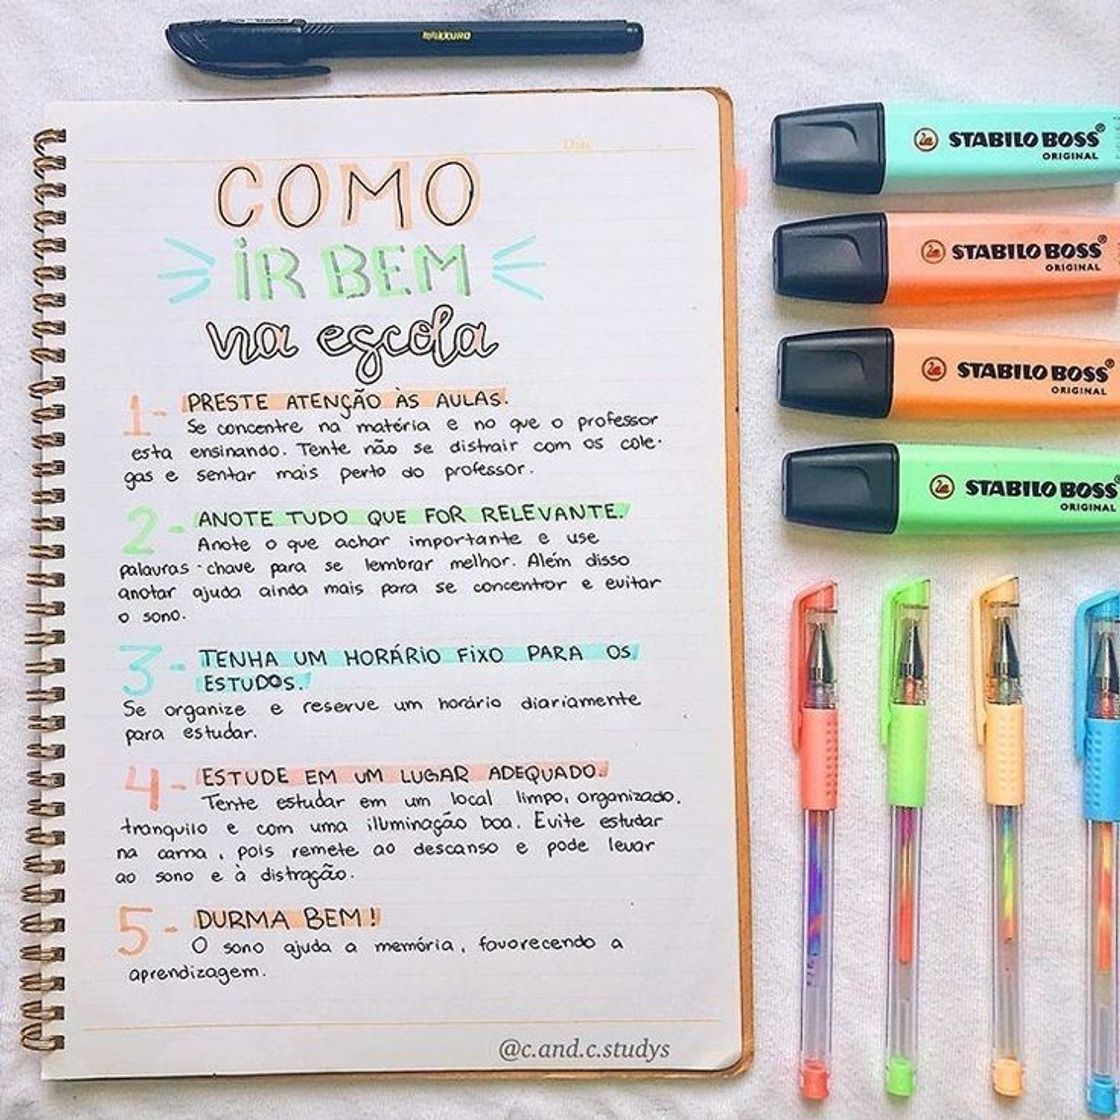 COMO
iR BEM
na escola
1- PRESTE ATENÇÃO ÀS AULAS.
Se concentre na matéria e no que o professor
esta ensinando. Tente não se distrair com os cole-
gas e sentar mais perto do professor.
2- ANOTE TUDO QUE FOR RELEVANTE.
Anote o que achar importante e use
palavras-chave para se lembrar melhor. Além disso
anotar ajuda ainda mais para se concentrar e evitar
o sono.
3- TENHA UM HORÁRIO FIXO PARA OS
ESTUDOS.
Se organize e reserve um horário diariamente
para estudar.
4- ESTUDE EM UM LUGAR ADEQUADO.
Tente estudar em um local limpo, organizado,
tranquilo e com uma iluminação boa. Evite estudar
na cama, pois remete ao descanso e pode levar
ao sono e à distração.
5- DURMA BEM!
O sono ajuda a memória, favorecendo a
aprendizagem.
@c.and.c.studys
STABILO BOSS®
ORIGINAL
STABILO BOSS®
ORIGINAL
STABILO BOSS®
ORIGINAL
STABILO BOSS®
ORIGINAL